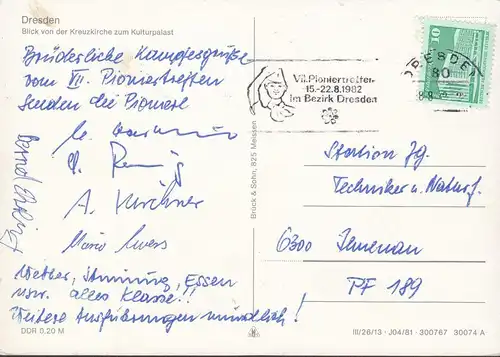 Dresden
Blick von der Kreuzkirche zum Kulturpalast
Brüderliche Kampfesgrüße
vom VII. Pioniertreffen
senden die Pioniere
A. Kirchner
Wetter, Stimmung, Essen
usw. alles Klasse!!
Weitere Ausführungen mündlich!
DDR 0,20 M
Brück & Sohn, 825 Meissen
VII. Pioniertreffen
15.-22.8.1982
im Bezirk Dresden
DRESDEN
80
10
Station Jg.
Techniker u. Naturf.
6300 Ilmenau
PF 189
III/26/13 · J04/81 · 300767 30074 A